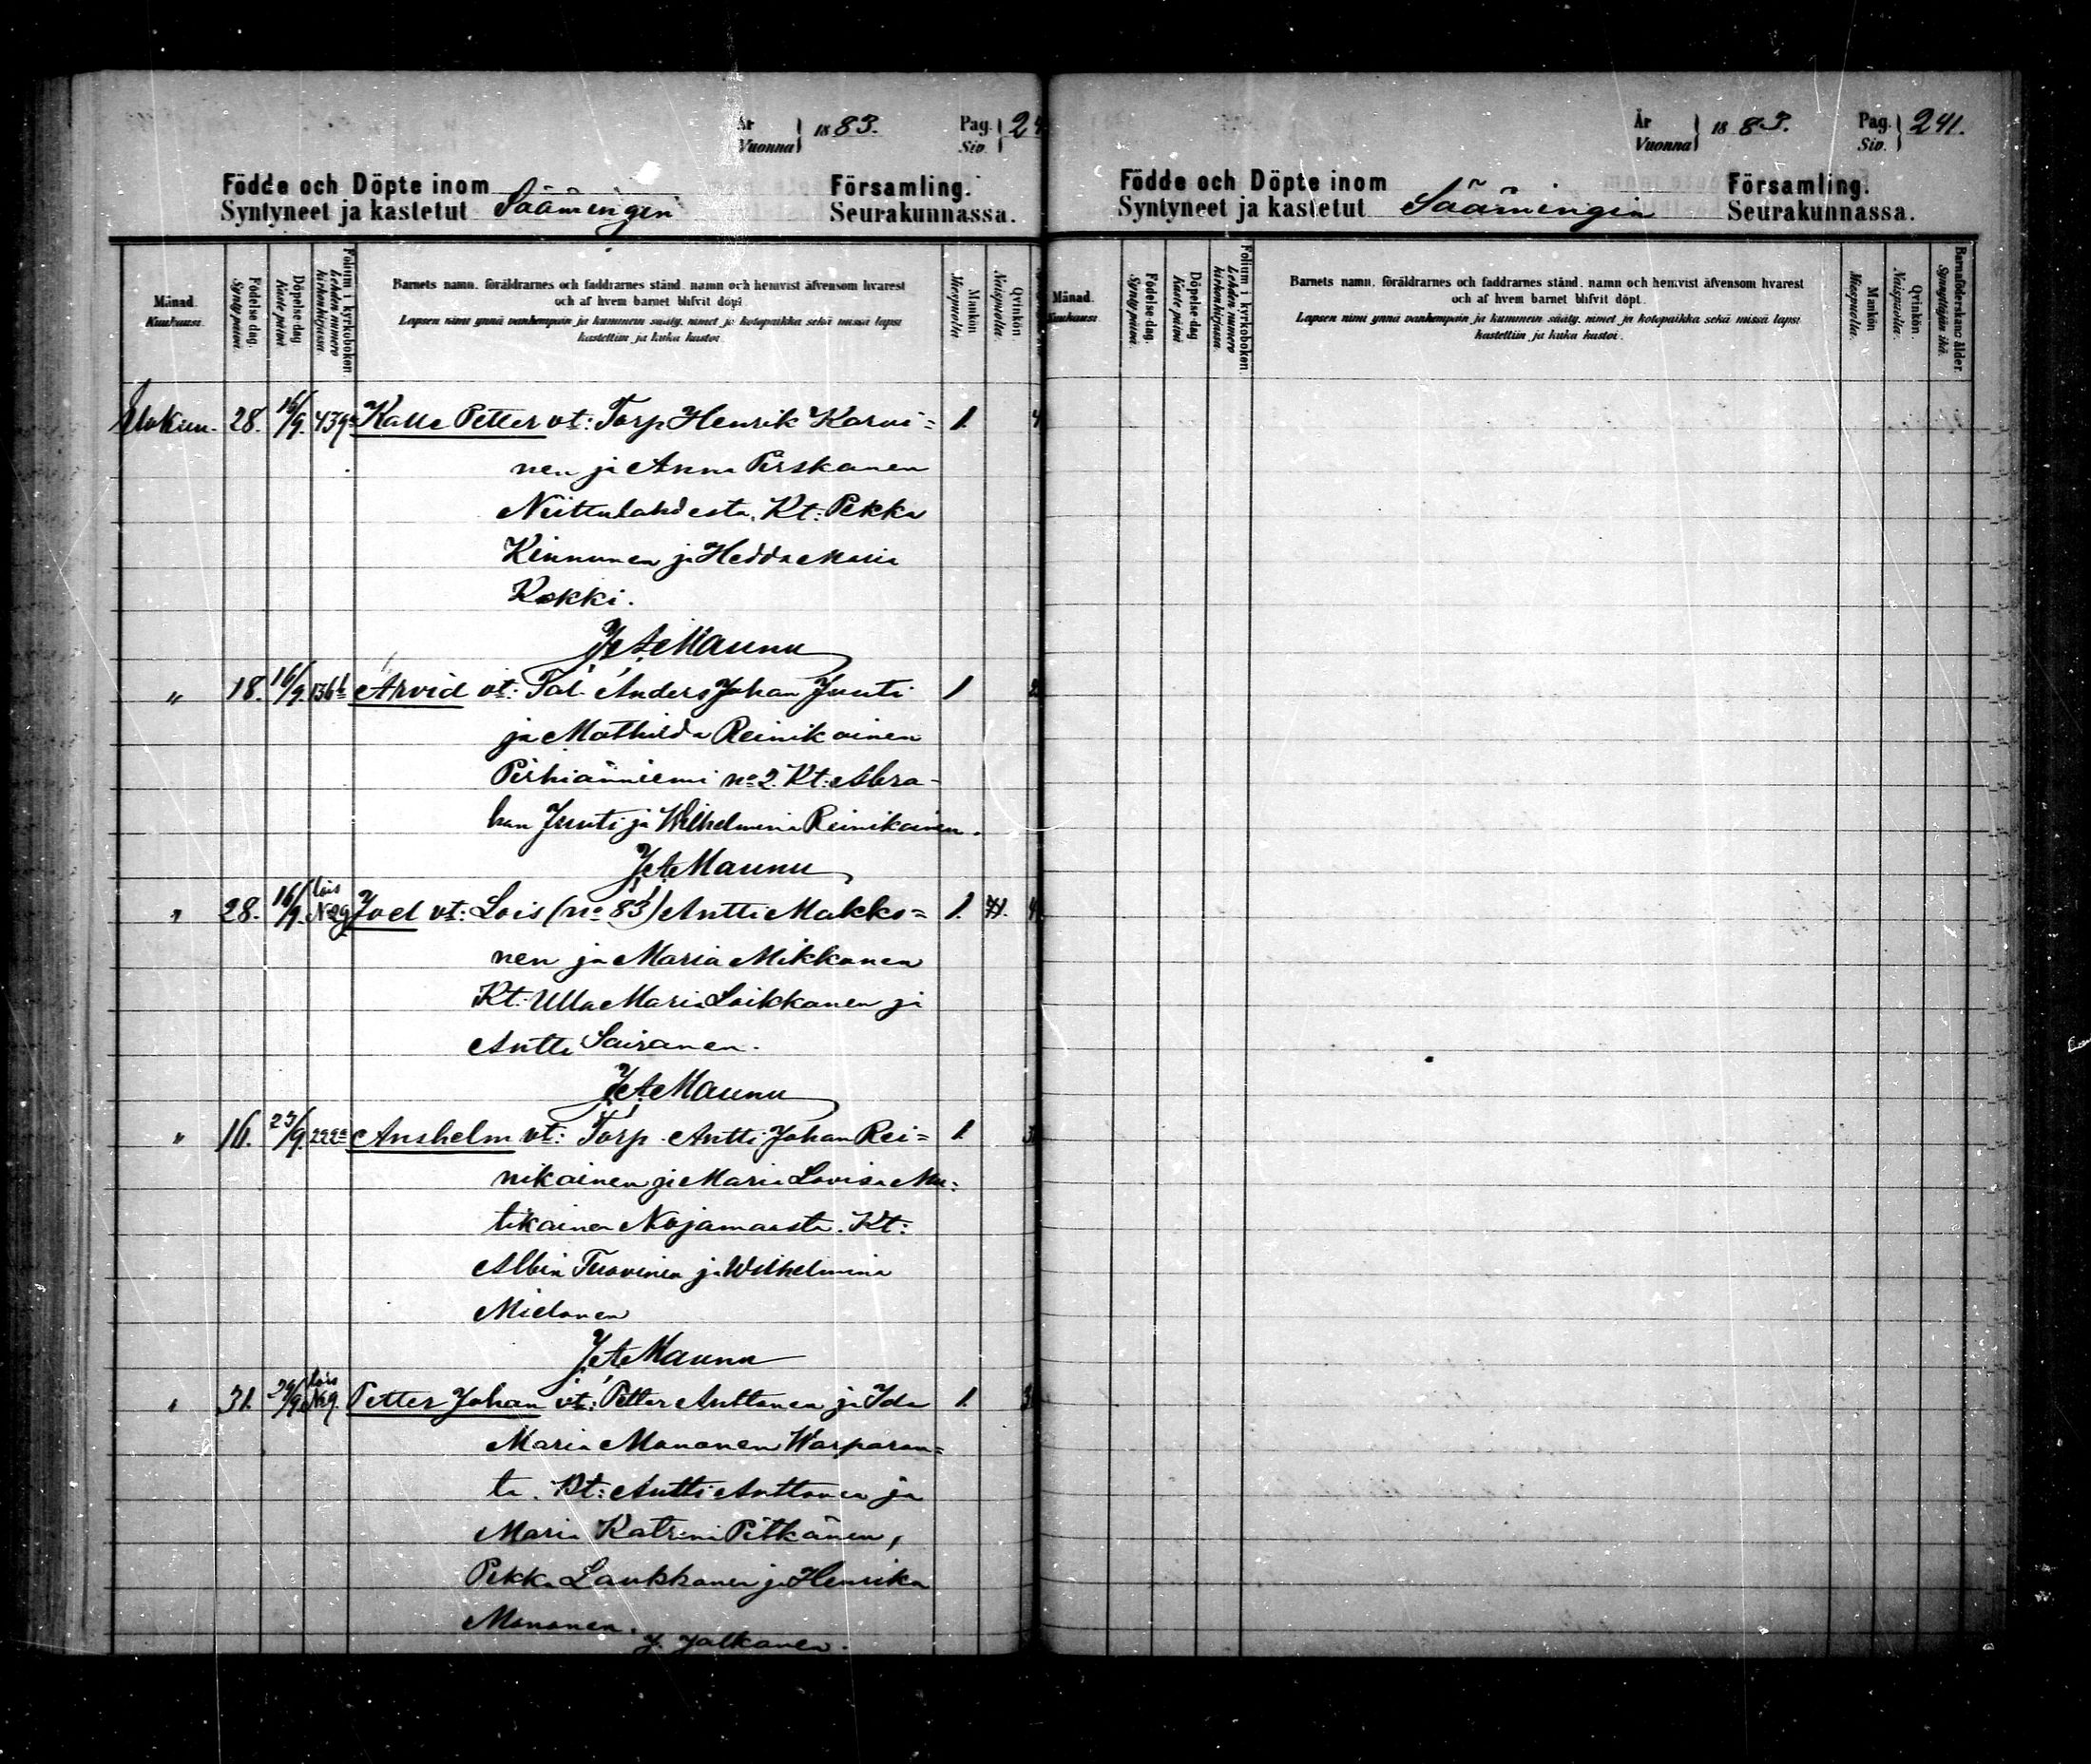 År
Vuonna } 1883. Pag. Siv. } 24
Födde och Döpte inom
Syntyneet ja kastetut Säämingin Församling.
Seurakunnassa.
Månad.
Kuukausi.
Födelse dag.
Syntypäivä.
Döpelse dag
Kaste päivä
Folium i kyrkoboken
Lehden numero
kirkonkirjassa.
Barnets namn, föräldrarnes och faddrarnes stånd, namn och hemvist äfvensom hvarest
och af hvem barnet blifvit döpt.
Lapsen nimi ynnä vanhempain ja kummein sääty, nimet ja kotopaikka sekä missä lapsi
kastettiin ja kuka kastoi.
Mankön
Miespuolia.
Qvinkön.
Naispuolia.
Elokuu. 28. 16/9. 439 Kalle Petter vt: Torp Henrik Karvi= 1.
nen ja Anna Purskanen
Niittulahdesta, Kt: Pekka
Kinnunen ja Hedda Maria
Kokki.
Maunu
" 18. 16/9. 136 Arvid vt: Tal. Anders Johan Juuti 1
ja Mathilda Reinikainen
Pirhiänniemi no 2. Kt: Abra-
ham Juuti ja Wilhelmina Reinikainen.
Maunu
" 28. 16/9. lois N 29 Joel vt: Lois (no 83) Antti Makko= 1.
nen ja Maria Mikkonen
Kt: Ulla Maria Loikkanen ja
Antti Sairanen.
Maunu
" 16. 23/9. 222 Anshelm vt: Torp. Antti Johan Rei= 1.
nikainen ja Maria Lovisa Mu=
tikainen Nojamaasta. Kt:
Albin Tuovinen ja Wilhelmina
Mielonen
Maunu
" 31. 29/9. lois Petter Johan vt: Petter Anttonen ja Ida 1.
Maria Mononen Warparan=
ta. Kt: Antti Anttonen ja
Maria Katrina Pitkänen,
Pekka Laukkanen ja Henrika
Mononen.
J. Jalkanen.
År
Vuonna } 1883. Pag. Siv. } 241.
Födde och Döpte inom
Syntyneet ja kastetut Säämingin Församling.
Seurakunnassa.
Månad.
Kuukausi.
Födelse dag.
Syntypäivä.
Döpelse dag
Kaste päivä
Folium i kyrkoboken
Lehden numero
kirkonkirjassa.
Barnets namn, föräldrarnes och faddrarnes stånd, namn och hemvist äfvensom hvarest
och af hvem barnet blifvit döpt.
Lapsen nimi ynnä vanhempain ja kummein sääty, nimet ja kotopaikka sekä missä lapsi
kastettiin ja kuka kastoi.
Mankön
Miespuolia.
Qvinkön.
Naispuolia.
Barnaföderskans ålder.
Synnyttäjän ikä.